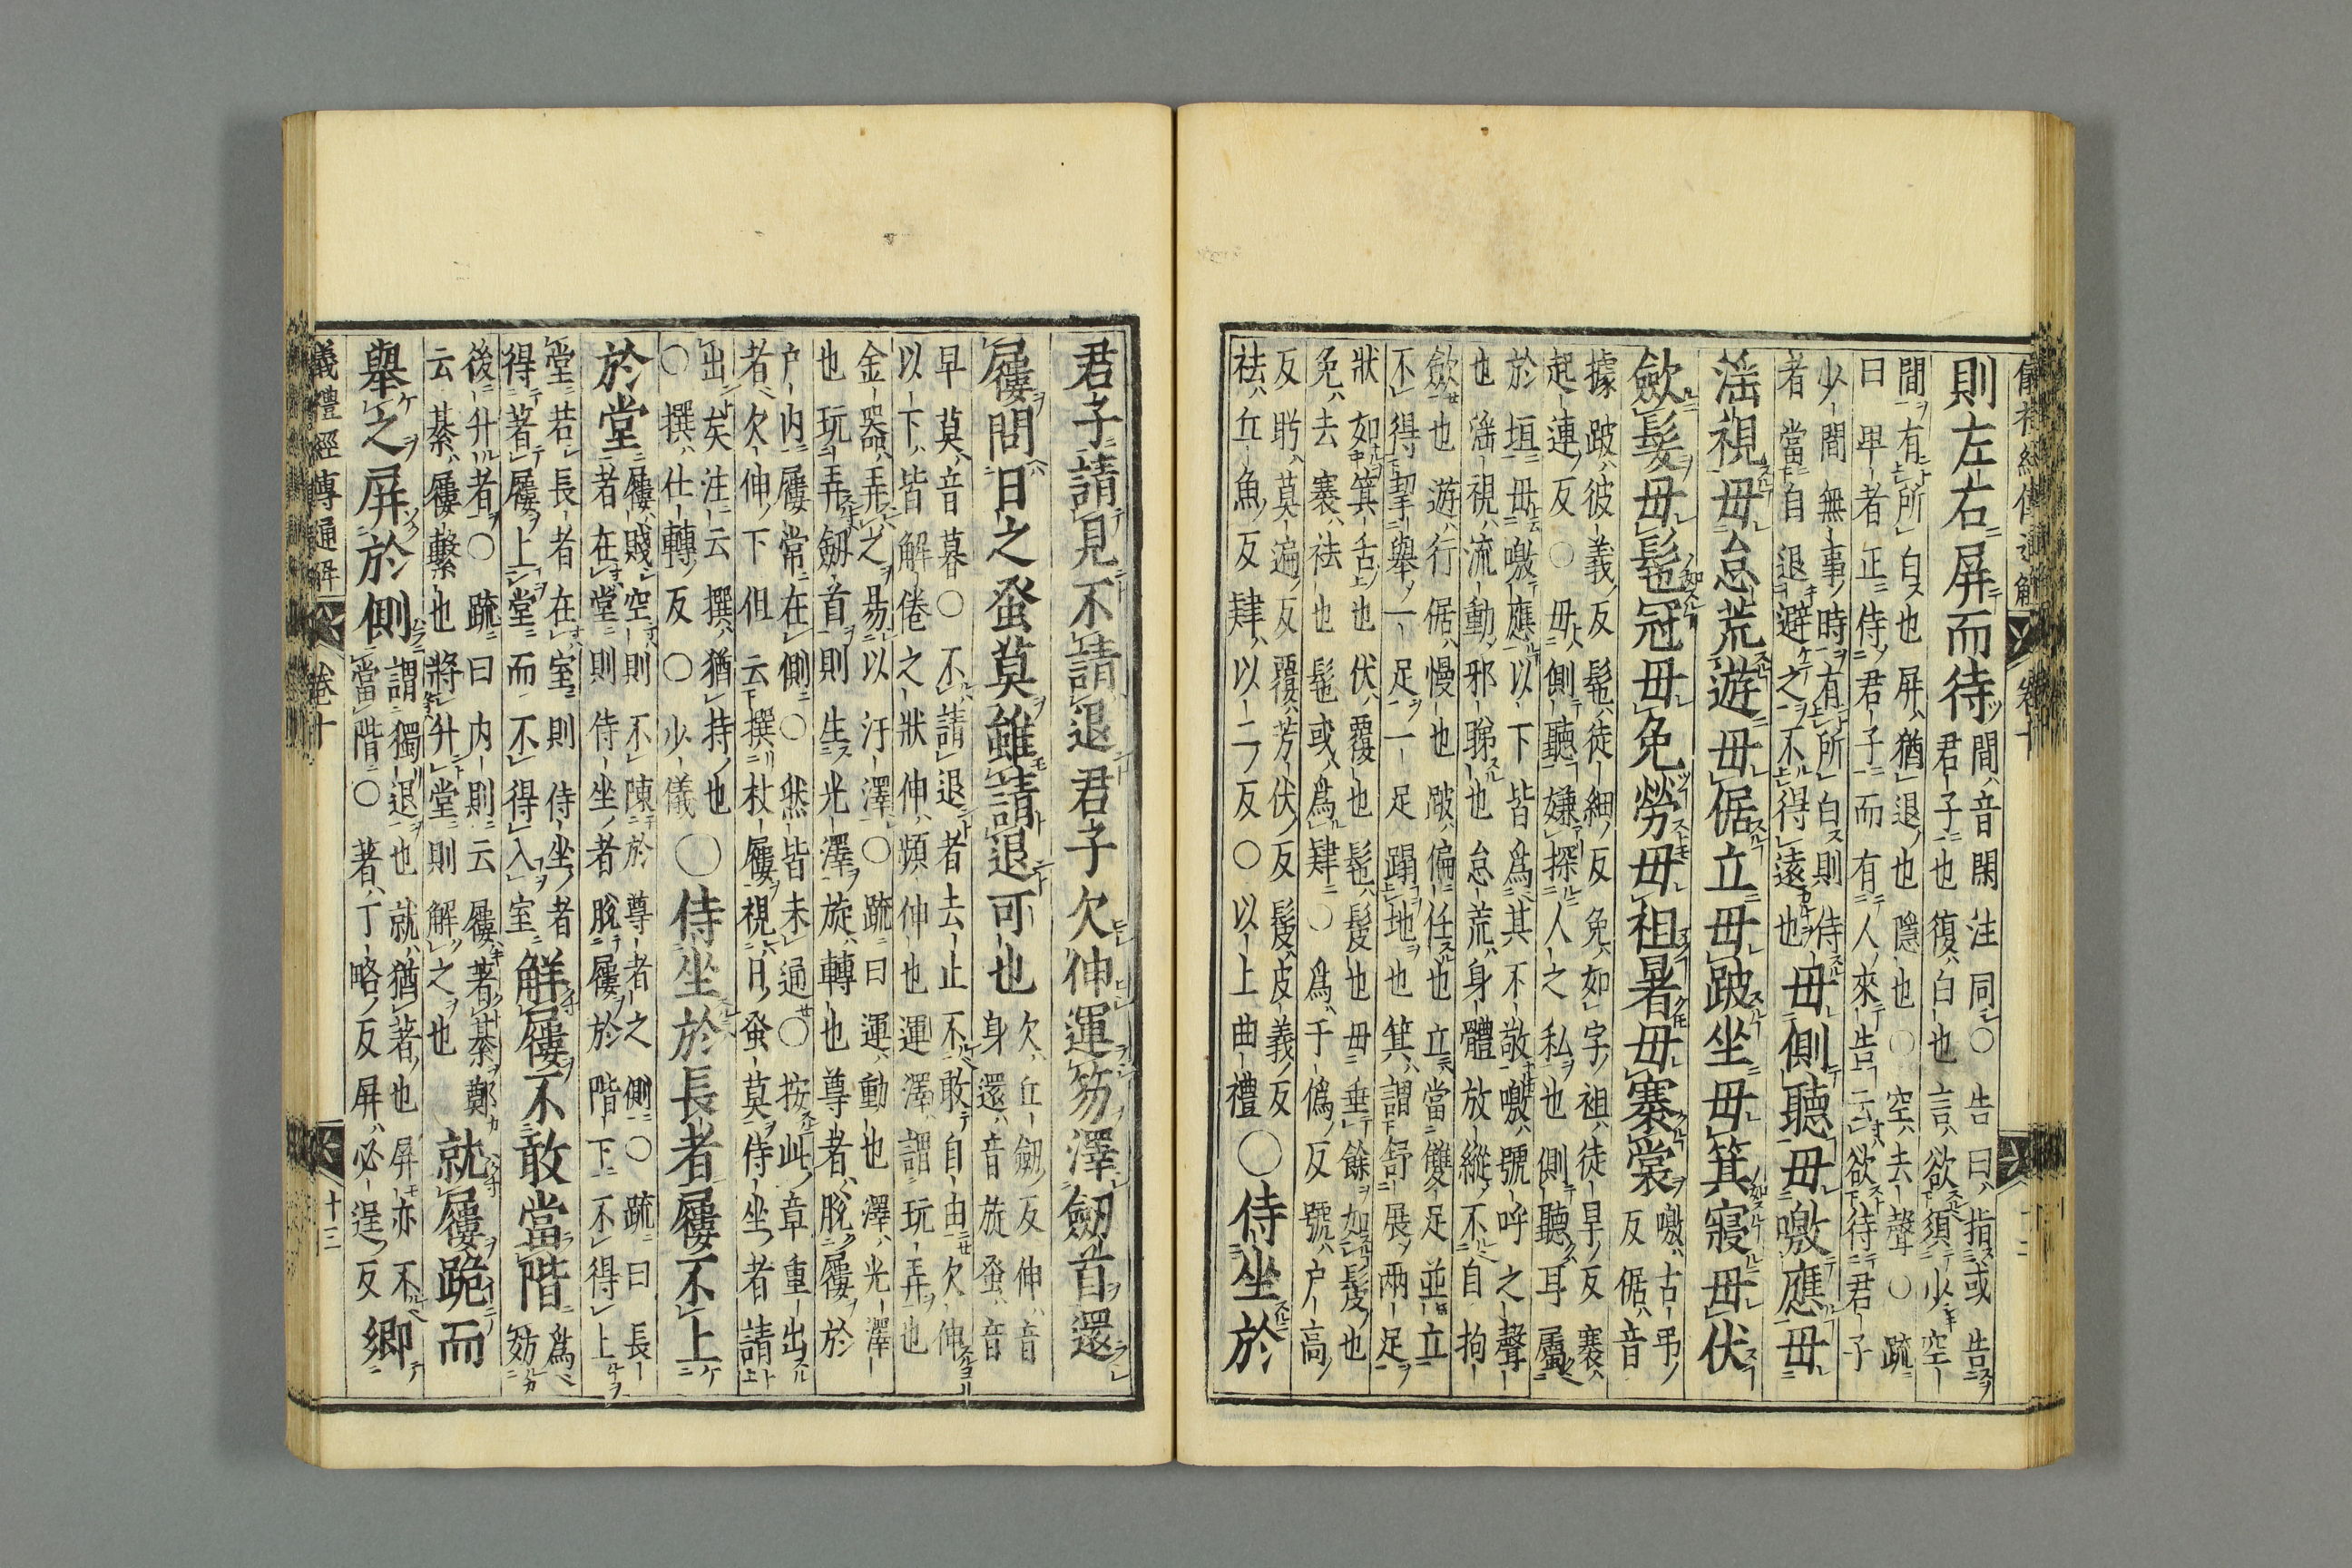 儀禮經傳通解 卷十
則左右屏而待 間音閑注同○告曰指或告
君子也復白也言欲須少空
間有所白也屏猶退也隱也○空去聲○疏
曰卑者正侍君子而有人來告云欲待君子
少間無事時有所白則侍
者當自退避之不得遠也 毋側聽毋噭應毋
淫視毋怠荒遊毋倨立毋跛坐毋箕寢毋伏
歛髮毋髢冠毋免勞毋袒暑毋褰裳 噭古弔
反倨音
據跛彼義反髢徒細反免如字袒徒旱反褰
起連反○毋側聽嫌探人之私也側聽耳屬
於垣毋噭應以下皆爲其不敬噭號呼之聲
也淫視流動邪睇也怠荒身體放縱不自拘
歛也遊行倨慢也跛偏任也立當雙足並立
不得挈舉一足一足蹋地也箕謂舒展兩足
狀如箕舌也伏覆也髢髮也毋垂餘如髲也
免去褰袪也髢或爲肆○爲于僞反號户高
反眄莫遍反覆芳伏反髲皮義反
袪丘魚反肆以二反○以上曲禮○侍坐於
君子請見不請退君子欠伸運笏澤劒首還
屨問日之蚤莫雖請退可也 欠丘劒反伸音
身還音旋蚤音
早莫音暮○不請退者去止不敢自由欠伸
以下皆解倦之狀伸頻伸也運澤謂玩弄也
金器弄之易以汙澤○疏曰運動也澤光澤
也玩弄劒首則生光澤旋轉也尊者脫屨於
户内屨常在側○然皆未通○按此章重出
者欠伸下但云撰杖屨視日蚤莫侍坐者請
出矣注云撰猶持也
○撰仕轉反○少儀 ○侍坐於長者屨不上
於堂 屨賤空則不陳於尊者之側○疏曰長
者在堂則侍坐者脫屨於階下不得上
堂若長者在室則侍坐者
得著屨上堂而不得入室 解屨不敢當階 爲妨
後升者○疏曰内則云屨著綦鄭
云綦屨繫也將升堂則解之也 就屨跪而
舉之屏於側 謂獨退也就猶著也屏亦不
當階○著丁略反屏必逞反 鄉
儀禮經傳通解 卷十 十三